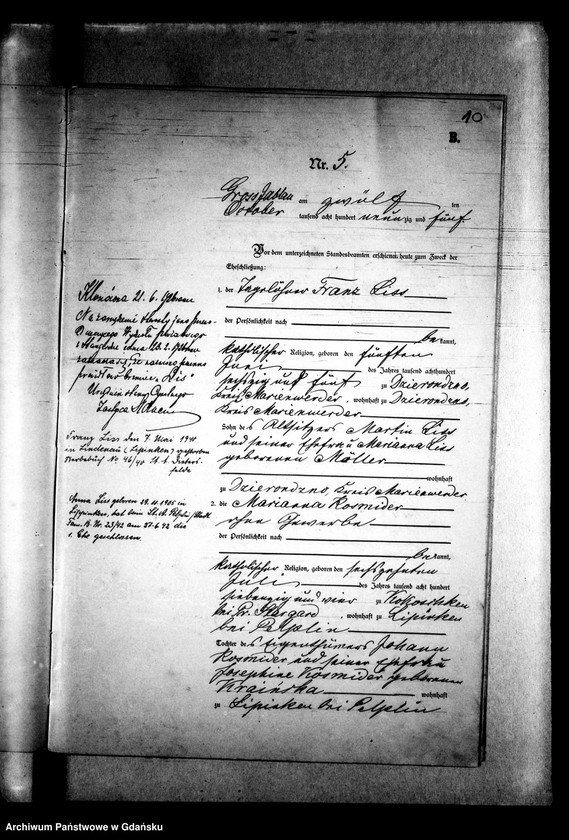 10
B.
Nr. 5.
Gross Jablau am zwölf ten
October tausend acht hundert neunzig und fünf.
Vor dem unterzeichneten Standesbeamten erschienen heute zum Zweck der
Eheschließung:
1. der Tagelöhner Franz Liss
der Persönlichkeit nach
be kannt,
katholischer Religion, geboren den fünften
Juni des Jahres tausend achthundert
sechszig und fünf zu Dzierondzno,
Kreis Marienwerder, wohnhaft zu Dzierondzno,
Kreis Marienwerder
Sohn des Altsitzers Martin Liss
und seiner Ehefrau Marianna Liss
geborenen Möller
wohnhaft
zu Dzierondzno, Kreis Marienwerder
2. die Marianna Kosmider
ohne Gewerbe
der Persönlichkeit nach
be kannt,
katholischer Religion, geboren den sechszehnten
Juli des Jahres tausend acht hundert
siebenzig und vier zu
bei Pr. Stargard, wohnhaft zu Lipinken
bei Pelplin
Tochter des Eigenthümers Johann
Kosmider und seiner Ehefrau
Josephine Kosmider geborenen
Krainska wohnhaft
zu Lipinken bei Pelplin
21. 6.
Franz Liss den 7. Mai 1940
in Lindenau (Lipinken) gestorben
Sterbebuch Nr. 46/40 St. A.
felde
Anna Liss geboren 29. 11. 1905 in
Lippinken, hat beim St. A. Pelplin/
Nr. 23/42 am 27.6.42 die
1. Ehe geschlossen.
Archiwum Państwowe w Gdańsku